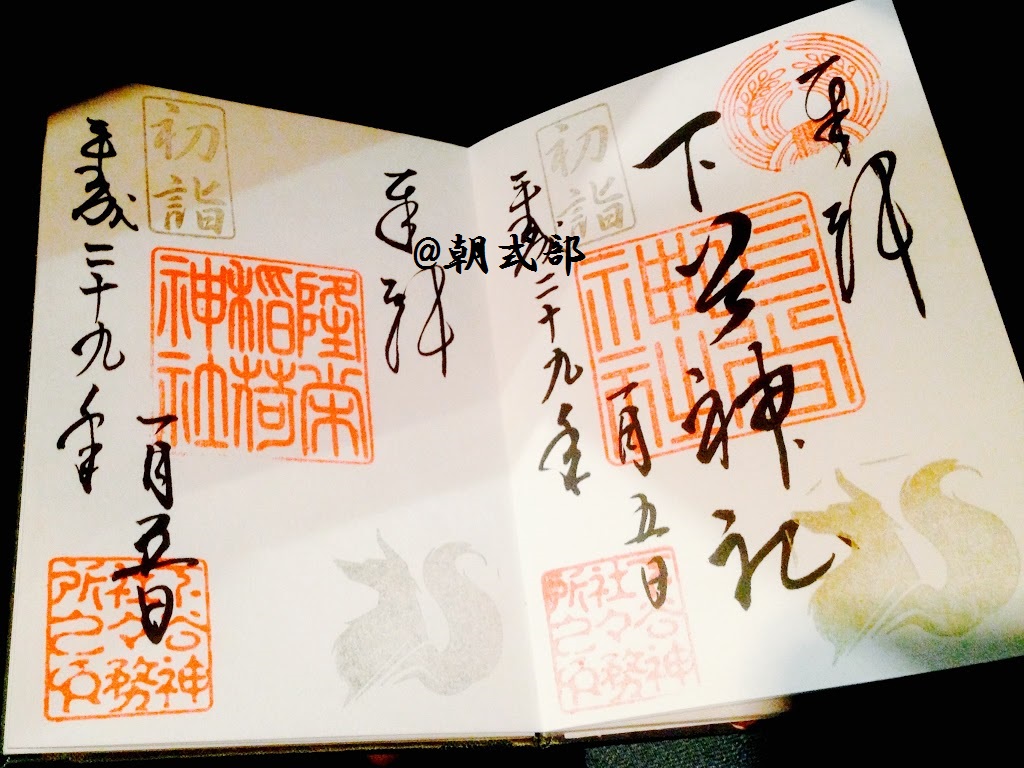 奉拝
下谷神社
一月五日
平成二十九年
初詣
下谷神
社々務
所之印
奉拝
隆栄
稲荷
神社
一月五日
平成二十九年
初詣
下谷神
社々務
所之印
@朝式部